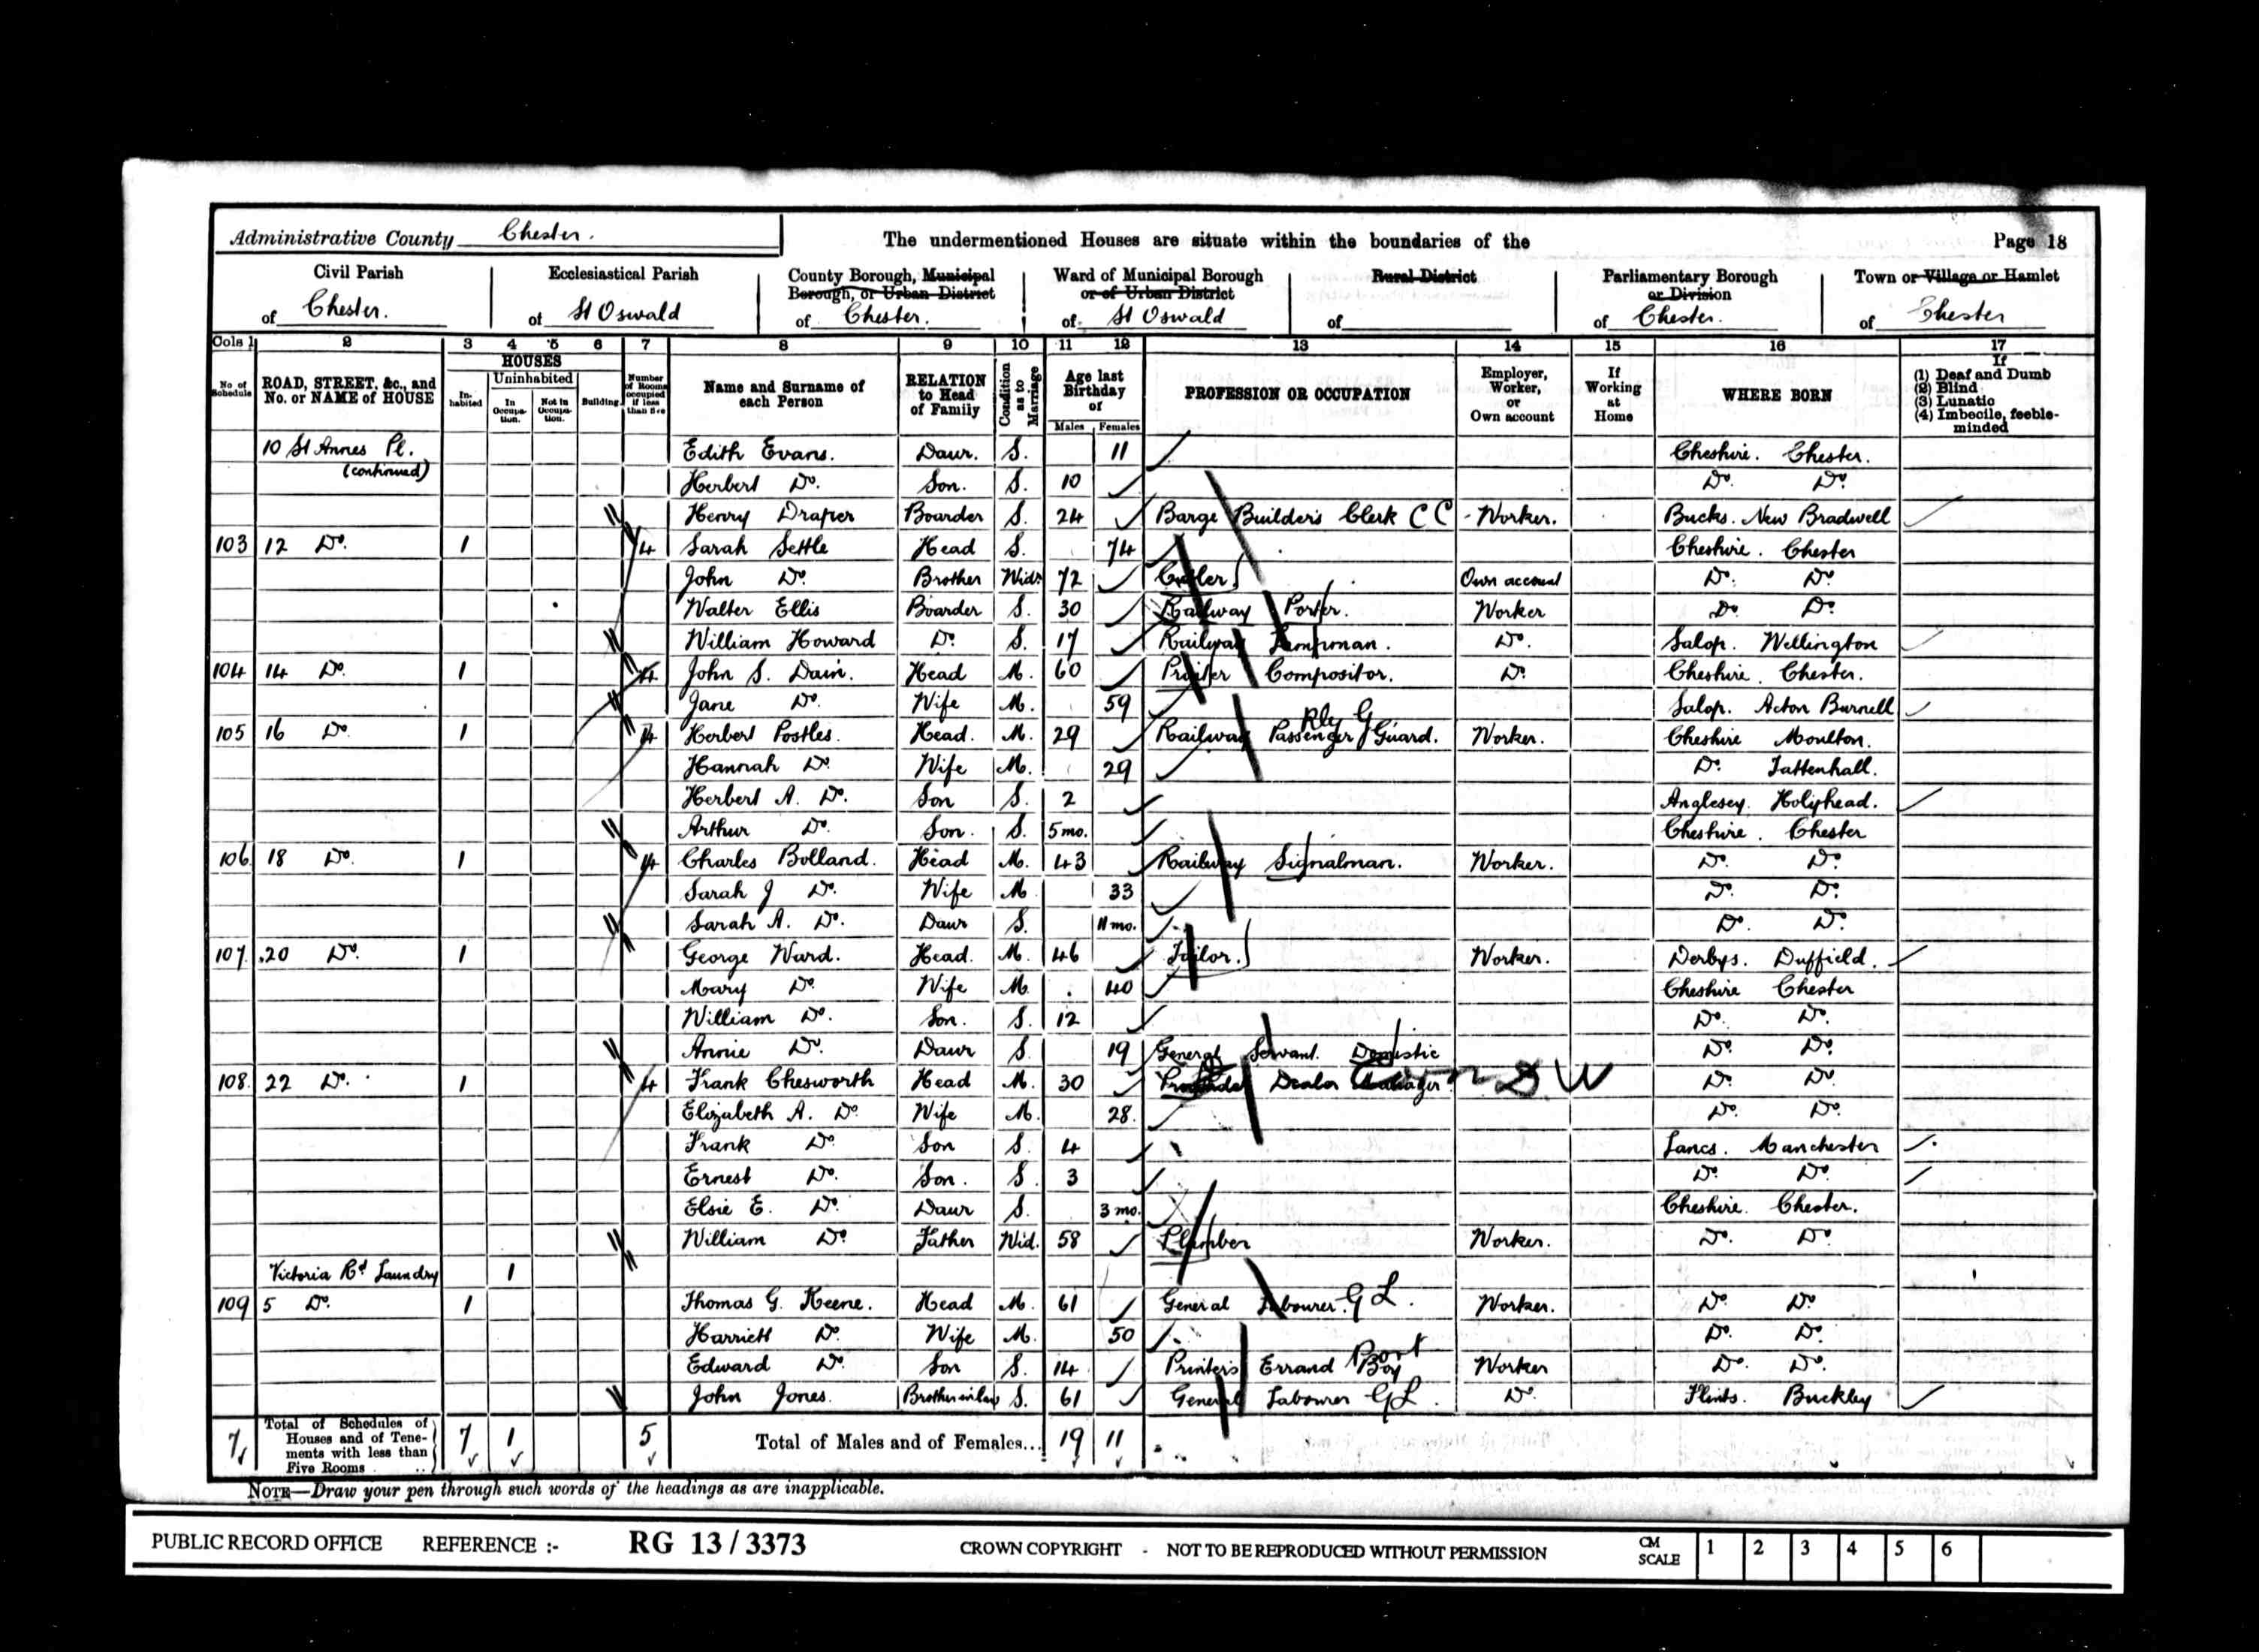 Administrative County Chester. The undermentioned Houses are situate within the boundaries of the Page 18
Civil Parish of Chester.
Ecclesiastical Parish of St Oswald
County Borough, Municipal Borough, or Urban District of Chester.
Ward of Municipal Borough or of Urban District of St Oswald
Rural District of
Parliamentary Borough or Division of Chester.
Town or Village or Hamlet of Chester
Cols 1 2 3 4 5 6 7 8 9 10 11 12 13 14 15 16 17
No of Schedule
ROAD, STREET, &c., and No. or NAME of HOUSE
HOUSES
In-habited
Uninhabited
In Occupa-tion.
Not in Occupa-tion.
Building
Number of Rooms occupied if less than five
Name and Surname of each Person
RELATION to Head of Family
Condition as to Marriage
Age last Birthday of
Males Females
PROFESSION OR OCCUPATION
Employer, Worker, or Own account
If Working at Home
WHERE BORN
If
(1) Deaf and Dumb
(2) Blind
(3) Lunatic
(4) Imbecile, feeble-minded
10 St Annes Pl. (continued) Edith Evans. Daur. S. 11 Cheshire. Chester.
Herbert Do. Son. S. 10 Do. Do.
Henry Draper Boarder S. 24 Barge Builders Clerk C C Worker. Bucks. New Bradwell
103 12 Do. 1 4 Sarah Settle Head S. 74 Cheshire. Chester
John Do. Brother Widr 72 Own account Do. Do.
Walter Ellis Boarder S. 30 Railway Porter. Worker Do Do.
William Howard Do. S. 17 Railway Lampman. Do. Salop. Wellington
104 14 Do. 1 4 John S. Dain. Head M. 60 Printer Compositor. Do. Cheshire. Chester.
Jane Do. Wife M. 59 Salop. Acton Burnell
105 16 Do. 1 4 Herbert Postles. Head. M. 29 Railway Passenger Rly G Guard. Worker. Cheshire Moulton.
Hannah Do. Wife M. 29 Do. Tattenhall.
Herbert A. Do. Son S. 2 Anglesey. Holyhead.
Arthur Do. Son. S. 5 mo. Cheshire. Chester
106 18 Do. 1 4 Charles Bolland. Head M. 43 Railway Signalman. Worker. Do. Do.
Sarah J Do. Wife M. 33 Do. Do.
Sarah A. Do. Daur S. 11 mo. Do. Do.
107. 20 Do. 1 George Ward. Head. M. 46 Tailor. Worker. Derbys. Duffield.
Mary Do. Wife M. 40 Cheshire Chester
William Do. Son. S. 12 Do. Do.
Annie Do. Daur S. 19 General Servant. Domestic Do. Do.
108. 22 Do. 1 4 Frank Chesworth Head M. 30 Dealer W Do. Do.
Elizabeth A. Do. Wife M. 28. Do. Do.
Frank Do Son S. 4 Lancs. Manchester
Ernest Do. Son. S. 3 Do. Do.
Elsie E. Do. Daur S. 3 mo. Cheshire. Chester.
William Do. Father Wid. 58 Plumber Worker. Do. Do.
Victoria Rd Laundry 1
109 5 Do. 1 Thomas G. Keene. Head M. 61 General Labourer. G L. Worker. Do. Do.
Harriett Do. Wife M. 50 Do. Do.
Edward Do. Son S. 14 Printers Errand Boy Port Worker Do. Do.
John Jones. Brother in law S. 61 General Labourer GL. Do. Flints. Buckley
7 Total of Schedules of Houses and of Tene-ments with less than Five Rooms .. 7 1 5 Total of Males and of Females... 19 11
NOTE—Draw your pen through such words of the headings as are inapplicable.
PUBLIC RECORD OFFICE REFERENCE :- RG 13 / 3373 CROWN COPYRIGHT - NOT TO BE REPRODUCED WITHOUT PERMISSION CM SCALE 1 2 3 4 5 6